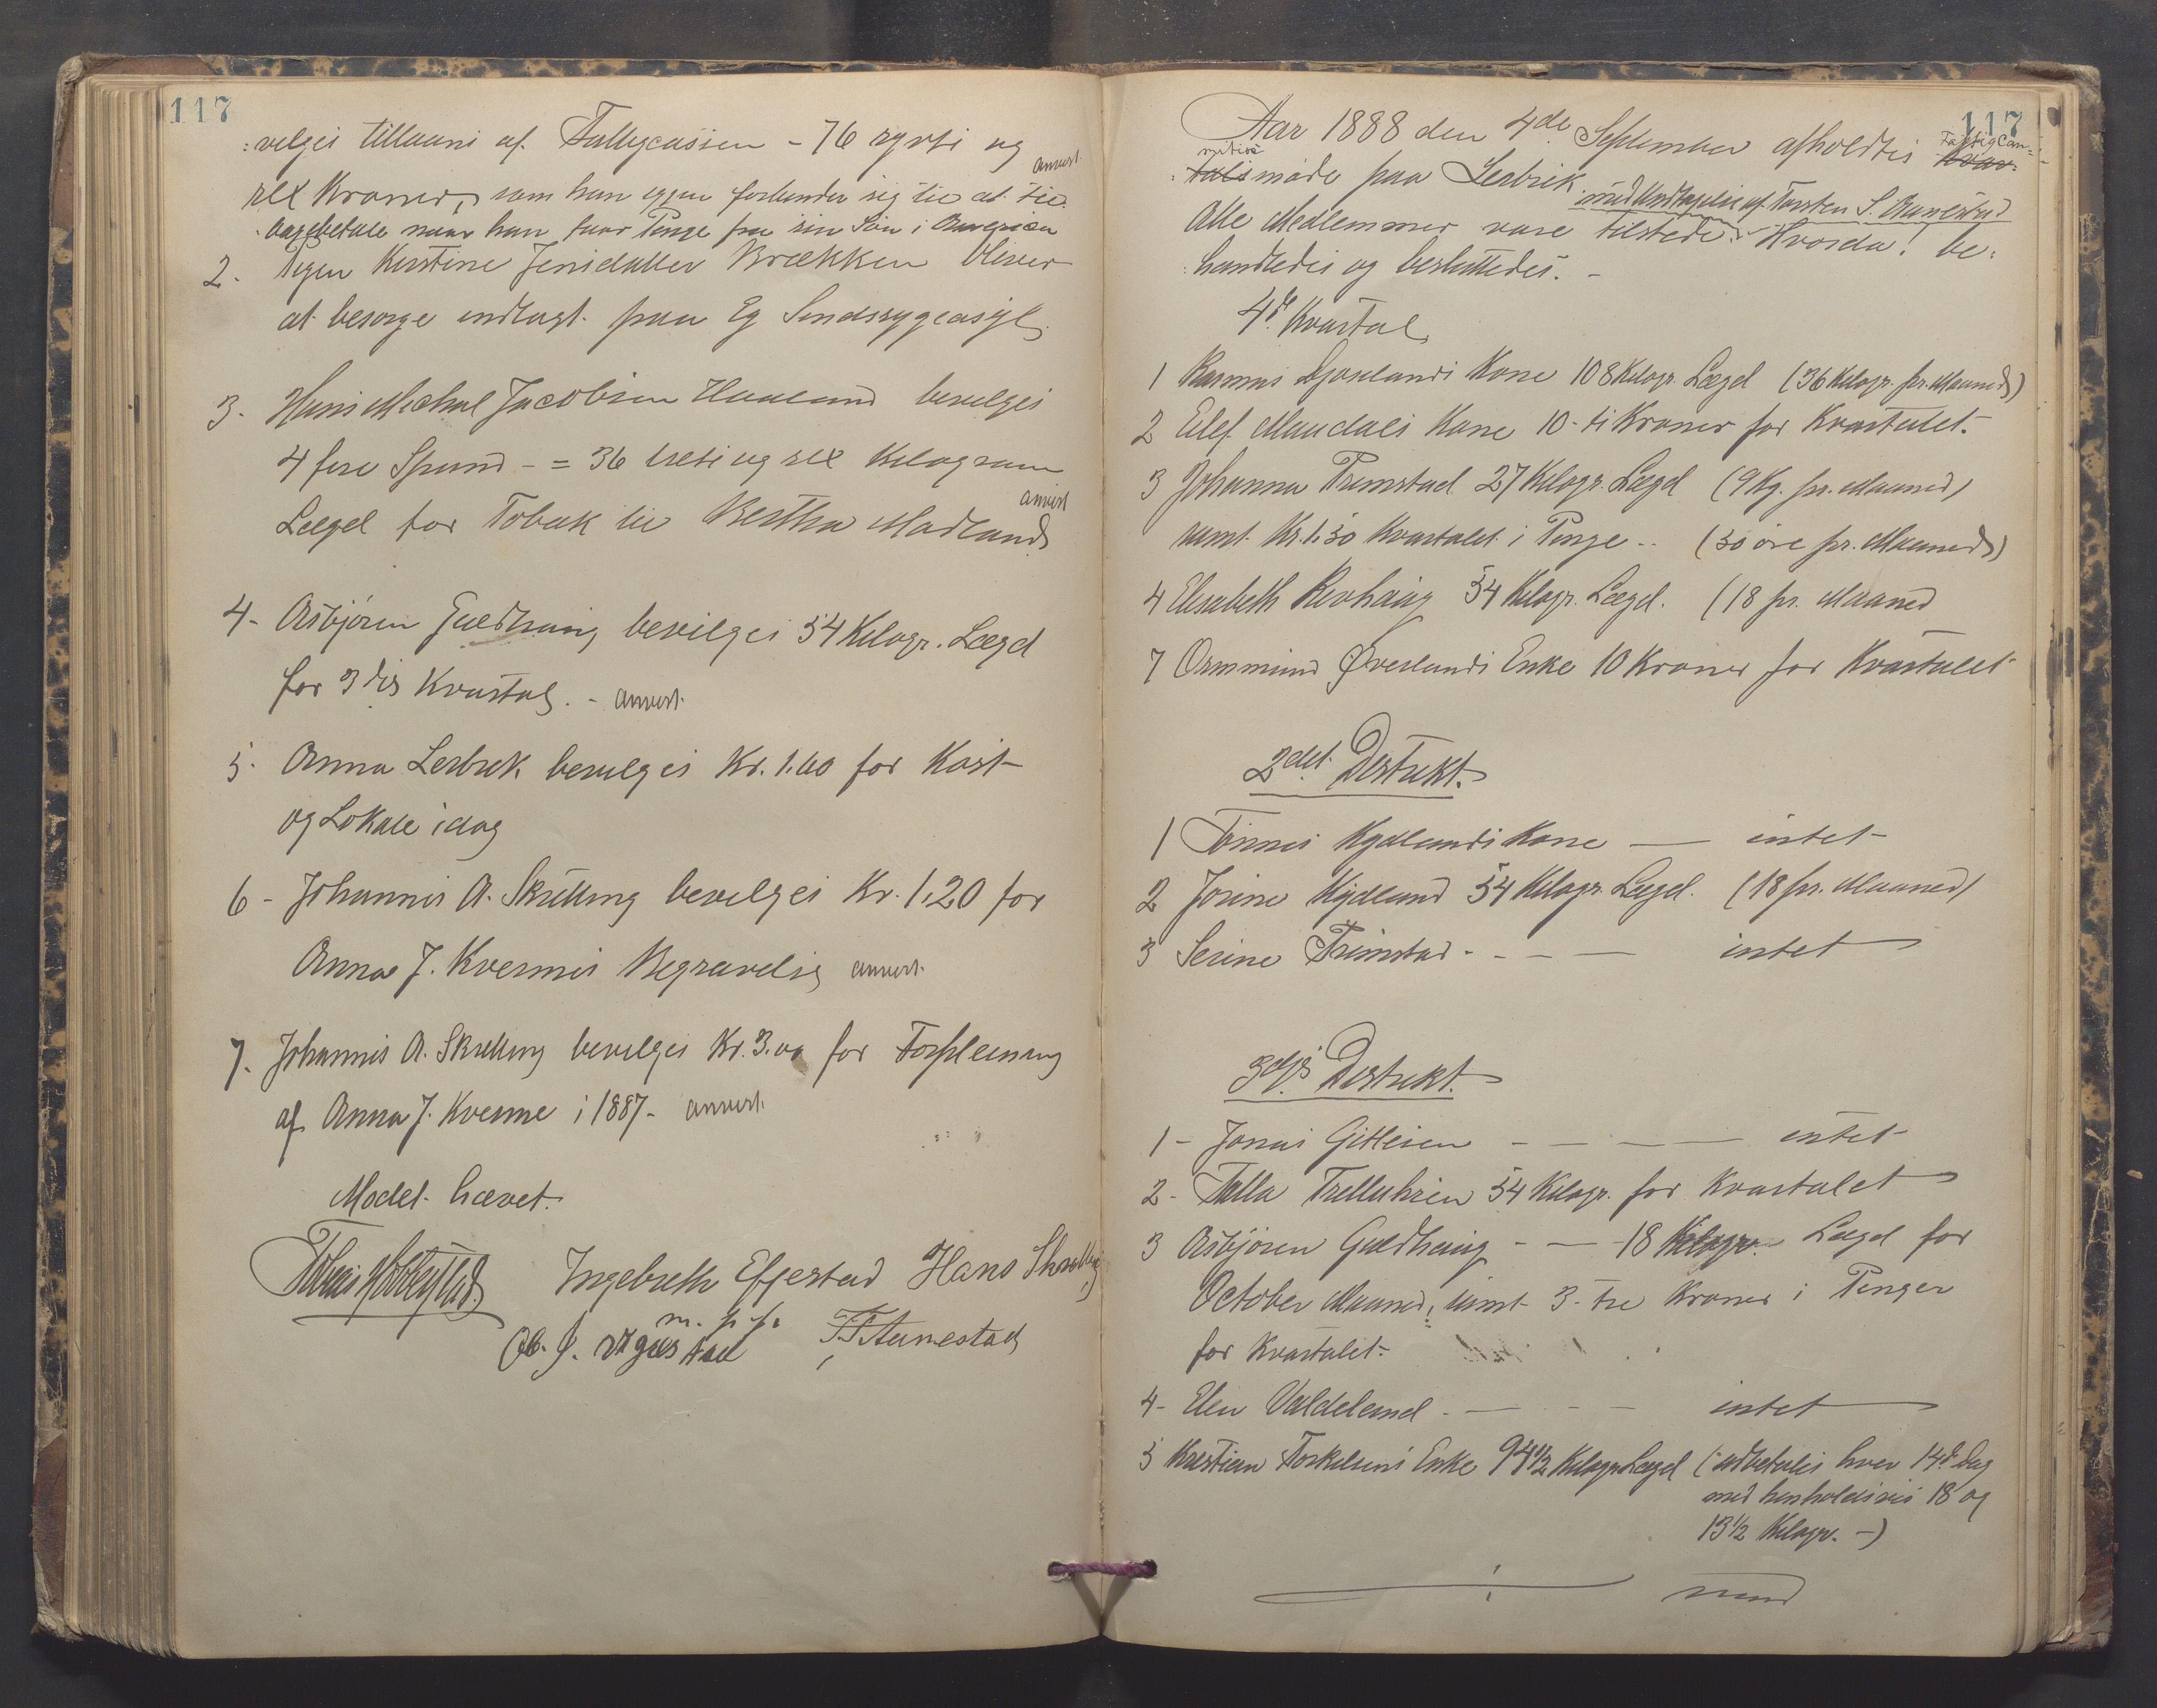 117
:velges tillaans af Fattigcassen - 76 sytti og
anvist
sex Kroner, som han igjen forbinder sig til at til:
:bagebetale naar han faar Penge fra sin Søn i Amerika
2. Pigen Kirstine Jensdatter Brækken bliver
at besørge indlagt paa Eg Sindssygeasyl
3. Hans Mickal Jacobsen Haaland bevilges
4 fire Spund - = 36 treti og sex Kilogram
anvist
Lægd for Tobak til Bertha Madland
4- Asbjøren Guldhaug bevilges 54 Kilogr. Lægd
for 3die Kvartal. - anvist
5. Anna Lerbrek bevilges Kr. 1.60 for Kost
og Lokale idag
6 - Johannis A. Skrelling bevilges Kr. 1,20 for
Anna J. Kvennes Begravelse anvist
7. Johannis A. Skrelling bevilges Kr. 3.00 for Forpleining
af Anna J. Kvenne i 1887 - anvist
Mødet hævet.
Ingebreth Efjestad Hans Skrelling
m. p. p.
Ob. J. Vigrestad T. T. Aunestad
117
Aar 1888 den 4de September afholdtes Kvar:
Fattigcom=
mitise
:tals møde paa Lerbrek
med Undtagelse af Torsten S. Aunestad
Alle Medlemmer vare tilstede. Hvorda! be:
:handledes og besluttedes. -
4de Kvartal
1 Rasmus Gjoslands Kone 108 Kilogr. Lægd (36 Kilogr. pr. Maaned)
2 Elef Maudals Kone 10 - ti Kroner for Kvartalet.
3 Johanna Frimstad 27 Kilogr. Lægd (9 Kg. pr. Maaned)
samt Kr. 1,50 Kvartalet i Penge .. (50 øre pr. Maaned)
4 Elisabeth Revhaug 54 Kilogr. Lægd. (18 pr. Maaned
7 Ommund Øveslands Enke 10 Kroner for Kvartalet
2det Distrikt.
1 Tønnes Kydlands Kone — intet
2 Josine Kydland 54 Kilogr. Lægd. (18 pr. Maaned)
3 Serine Frimstad - - - — intet
3die Distrikt.
1 - Jonas Gitlesen - — — — intet
2 - Talla Trelluhrin 54 Kilogr. for Kvartalet
3 Asbjøren Guldhaug - — - 18 Kilogr. Lægd for
October Maaned, samt 3 - tre Kroner i Penger
for Kvartalet.
4 - Elen Valdeland - — - - intet
5 Kristian Torkelsens Enke 94 1/2 Kilogr Lægd (udbetales hver 14de Dag
med henholdsvis 18 og
13 1/2 Kilogr. -)
vend